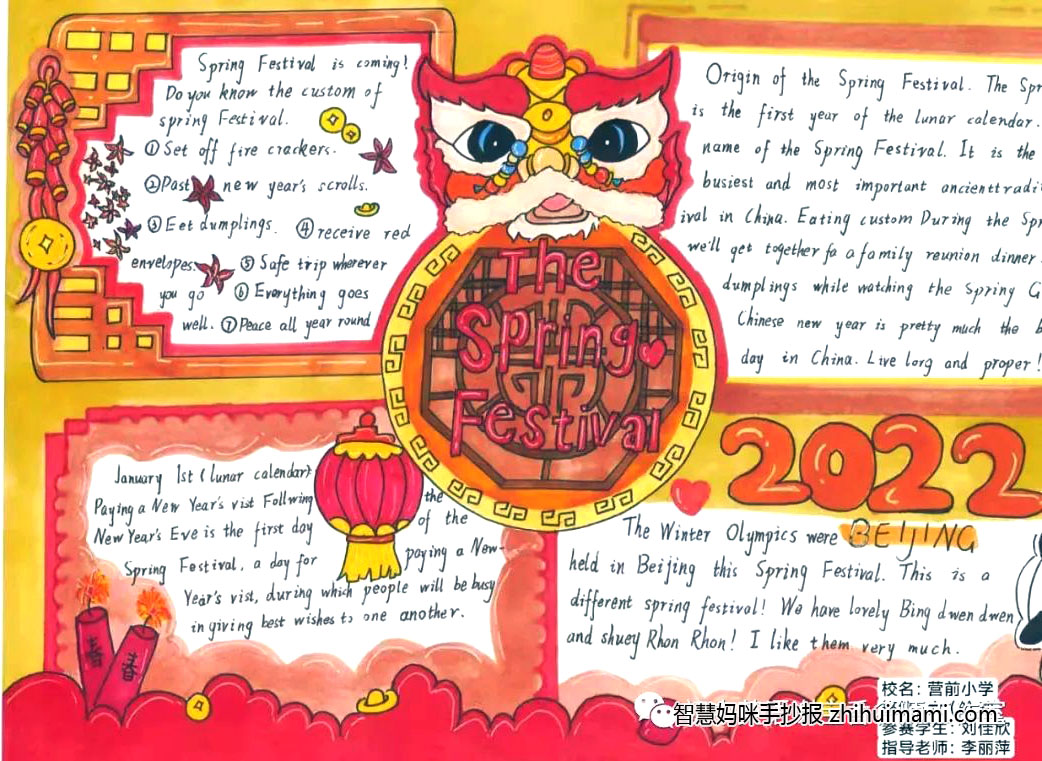 Spring Festival is coming!
Do you know the custom of
spring Festival.
①Set off fire crackers.
②Past new year's scrolls.
③Eet dumplings. ④receive red
envelopes. ⑤Safe trip wherever
you go ⑥Everything goes
well. ⑦Peace all year round
The
Spring
Festival
Origin of the Spring Festival. The Spr
is the first year of the lunar calendar.
name of the Spring Festival. It is the
busiest and most important ancienttradi
ival in China. Eating custom During the Spr
we'll get together fo a family reunion dinner.
dumplings while watching the Spring G
Chinese new year is pretty much the b
day in China. Live lorg and proper!
January 1st (lunar calendar)
Paying a New Year's vist Follwing the
New Year's Eve is the first day of the
Spring Festival, a day for paying a New-
Year's vist, during which people will be busy
in giving best wishes to one another.
春
春
2022
BEIJING
The Winter Olympics were
held in Beijing this Spring Festival. This is a
different spring festival! We have lovely Bing dwen dwen
and shuey Rhon Rhon! I like them very much.
校名：营前小学
智慧妈咪手抄报 zhihuimami.com
参赛学生：刘佳欣
指导老师：李丽萍